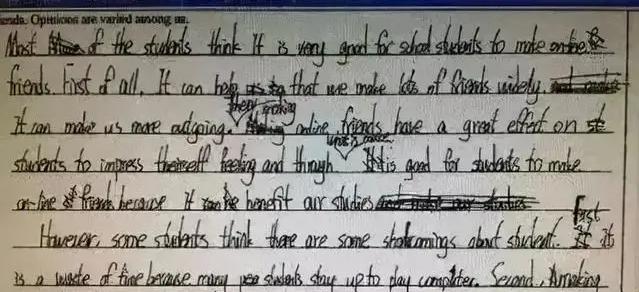 iends. Opinions are varied among us.
Most of the students think It is very good for school students to make on-line
friends. First of all, It can help that we make lots of friends widely.
then making
It can make us more outgoing. online friends have a great effect on
what is more
students to impress theirself feeling and through It is good for students to make
on-line friends because it can be benefit our studies
First
However, some students think there are some shortcomings about student. it
is a waste of time because many students stay up to play computer. Second, making